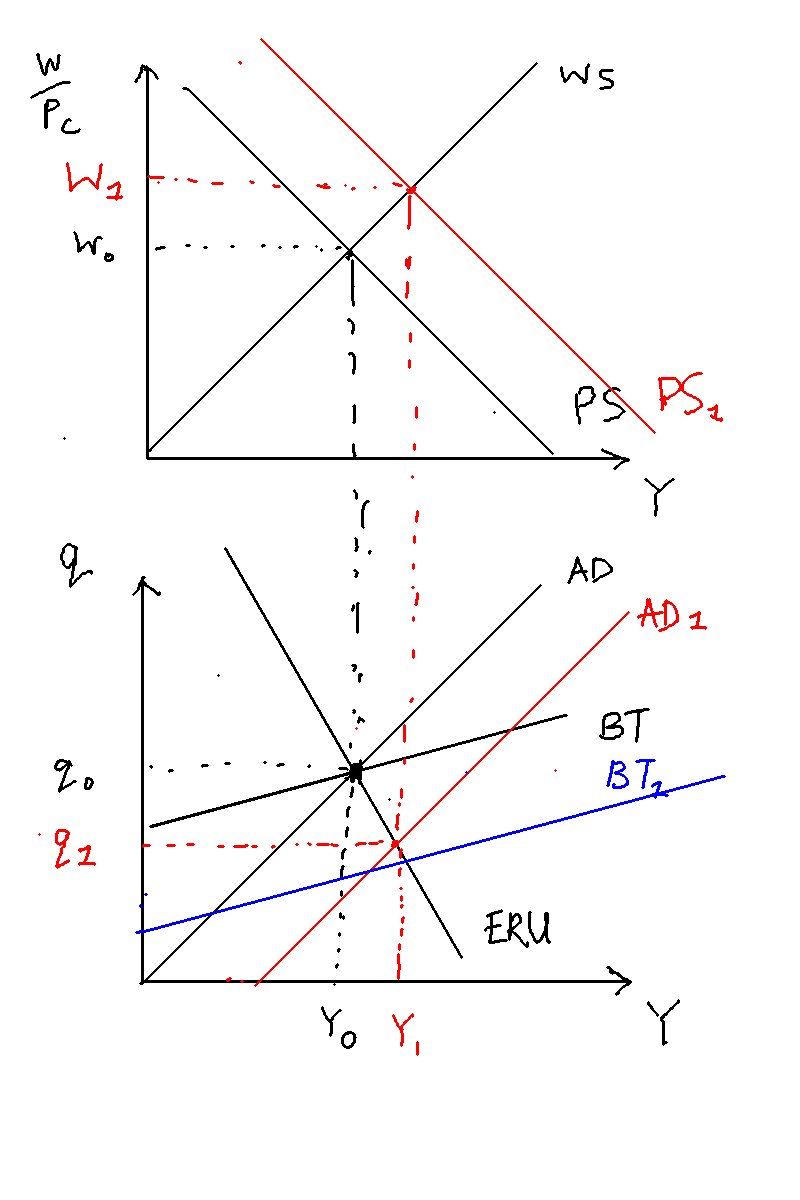 W
P_C
WS
W_1
W_0
PS
PS_1
Y
q
AD
AD_1
BT
BT_1
q_0
q_1
ERU
Y_0
Y_1
Y